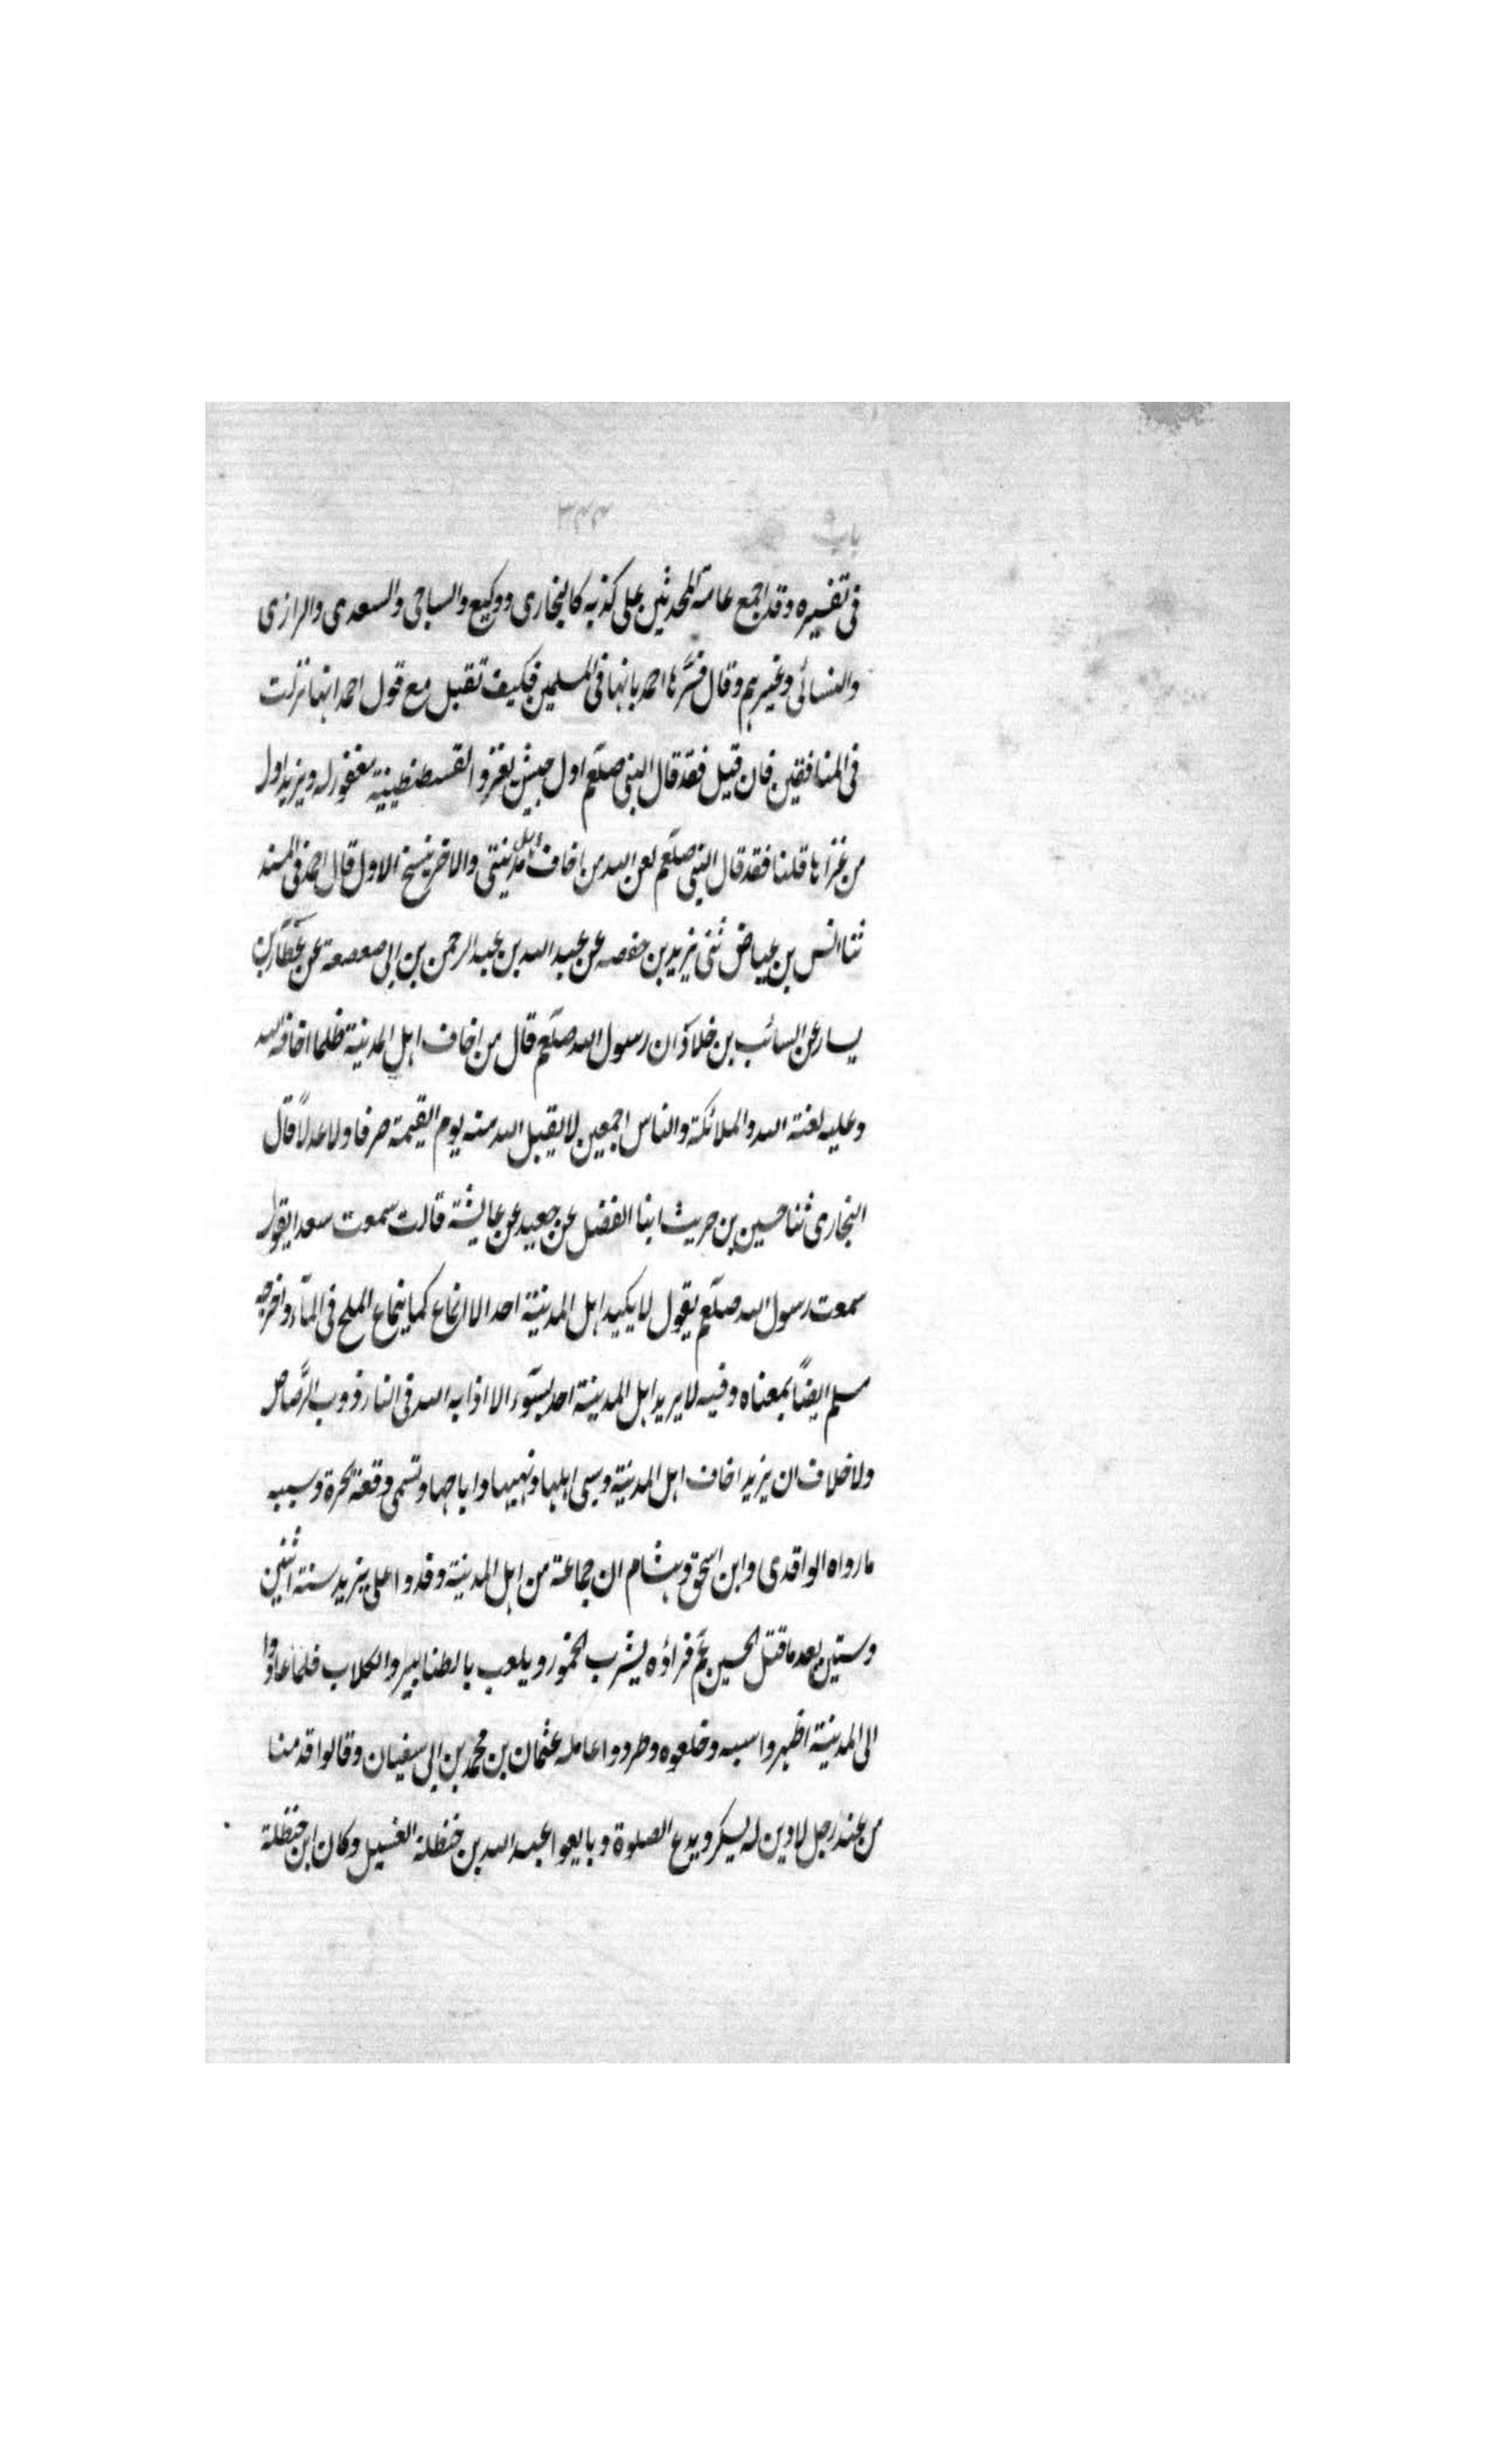 باب
فى تفسيره وقد اجمع عامة المحدثين على كذبه كالبخارى ووكيع والساجى والسعدى والرازى
والنسائى وغيرهم وقال فسَّرها احمد بانها فى المسلمين فكيف تقبل مع قول احمد انها نزلت
فى المنافقين فان قيل فقد قال النبى صلعم اول جيش يغزو القسطنطينية مغفور له ويزيد اول
من غزاها قلنا فقد قال النبى صلعم لعن الله من اخاف اهل مدينتى والاخر ينسخ الاول قال احمد فى المسند
ثنا انس بن عياض ثنى يزيد بن حفصه عن عبد الله بن عبد الرحمن بن ابى صعصعة عن عطآء بن
يسار عن السائب بن خلاد ان رسول الله صلعم قال من اخاف اهل المدينة ظلما اخافه الله
وعليه لعنة الله والملائكة والناس اجمعين لا يقبل الله منه يوم القيمة صرفا ولا عدلاً قال
البخارى ثنا حسين بن حريث ابنا الفضل عن جعيد عن عايشة قالت سمعت سعدا يقول
سمعت رسول الله صلعم يقول لا يكيد اهل المدينة احد الا انماع كما ينماع الملح فى المآء واخرجه
مسلم ايضاً بمعناه وفيه لا يريد اهل المدينة احد بسوء الا اذابه الله فى النار ذوب الرَّصاص
ولا خلاف ان يزيد اخاف اهل المدينة وسبى اهلها ونهبها واباحها وتسمى وقعة الحرة وسببه
ما رواه الواقدى وابن اسحق وهشام ان جماعة من اهل المدينة وفدوا على يزيد سنة اثنين
وستين بعد ما قتل الحسين عم فراؤه يشرب الخمور ويلعب بالطنابير والكلاب فلما عادوا
الى المدينة اظهروا سبه وخلعوه وطردوا عامله عثمان بن محمد بن ابى سفيان وقالوا قدمنا
من عند رجل لا دين له يسكر ويدع الصلوة وبايعوا عبد الله بن حنظلة الغسيل وكان ابن حنظلة